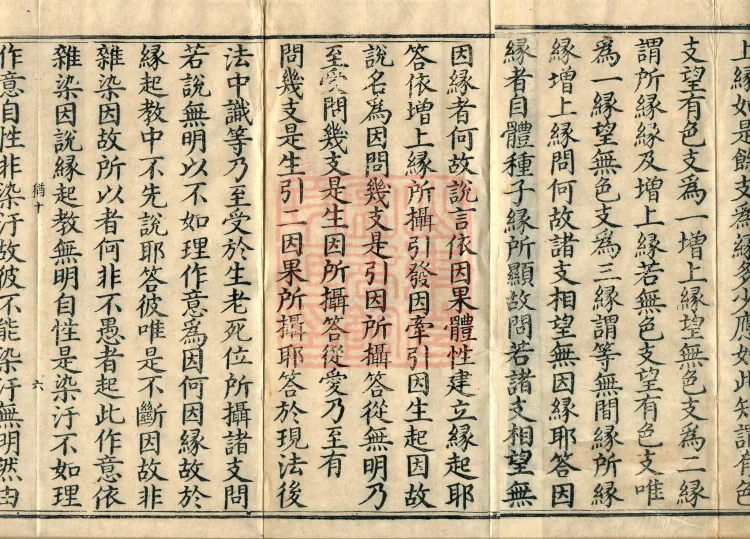 上緣如是餘支為緣多少應如此知謂有色
支望有色支為一增上緣望無色支為二緣
謂所緣緣及增上緣若無色支望有色支唯
為一緣望無色支為三緣謂等無間緣所緣
緣增上緣問何故諸支相望無因緣耶答因
緣者自體種子緣所顯故問若諸支相望無
因緣者何故說言依因果體性建立緣起耶
答依增上緣所攝引發因牽引因生起因故
說名為因問幾支是引因所攝答從無明乃
至受問幾支是生因所攝答從愛乃至有
問幾支是生引二因果所攝耶答於現法後
法中識等乃至受於生老死位所攝諸支問
若說無明以不如理作意為因何因緣故於
緣起教中不先說耶答彼唯是不斷因故非
雜染因故所以者何非不愚者起此作意依
雜染因說緣起教無明自性是染汙不如理
猶十
六
作意自性非染汙故彼不能染汙無明然由